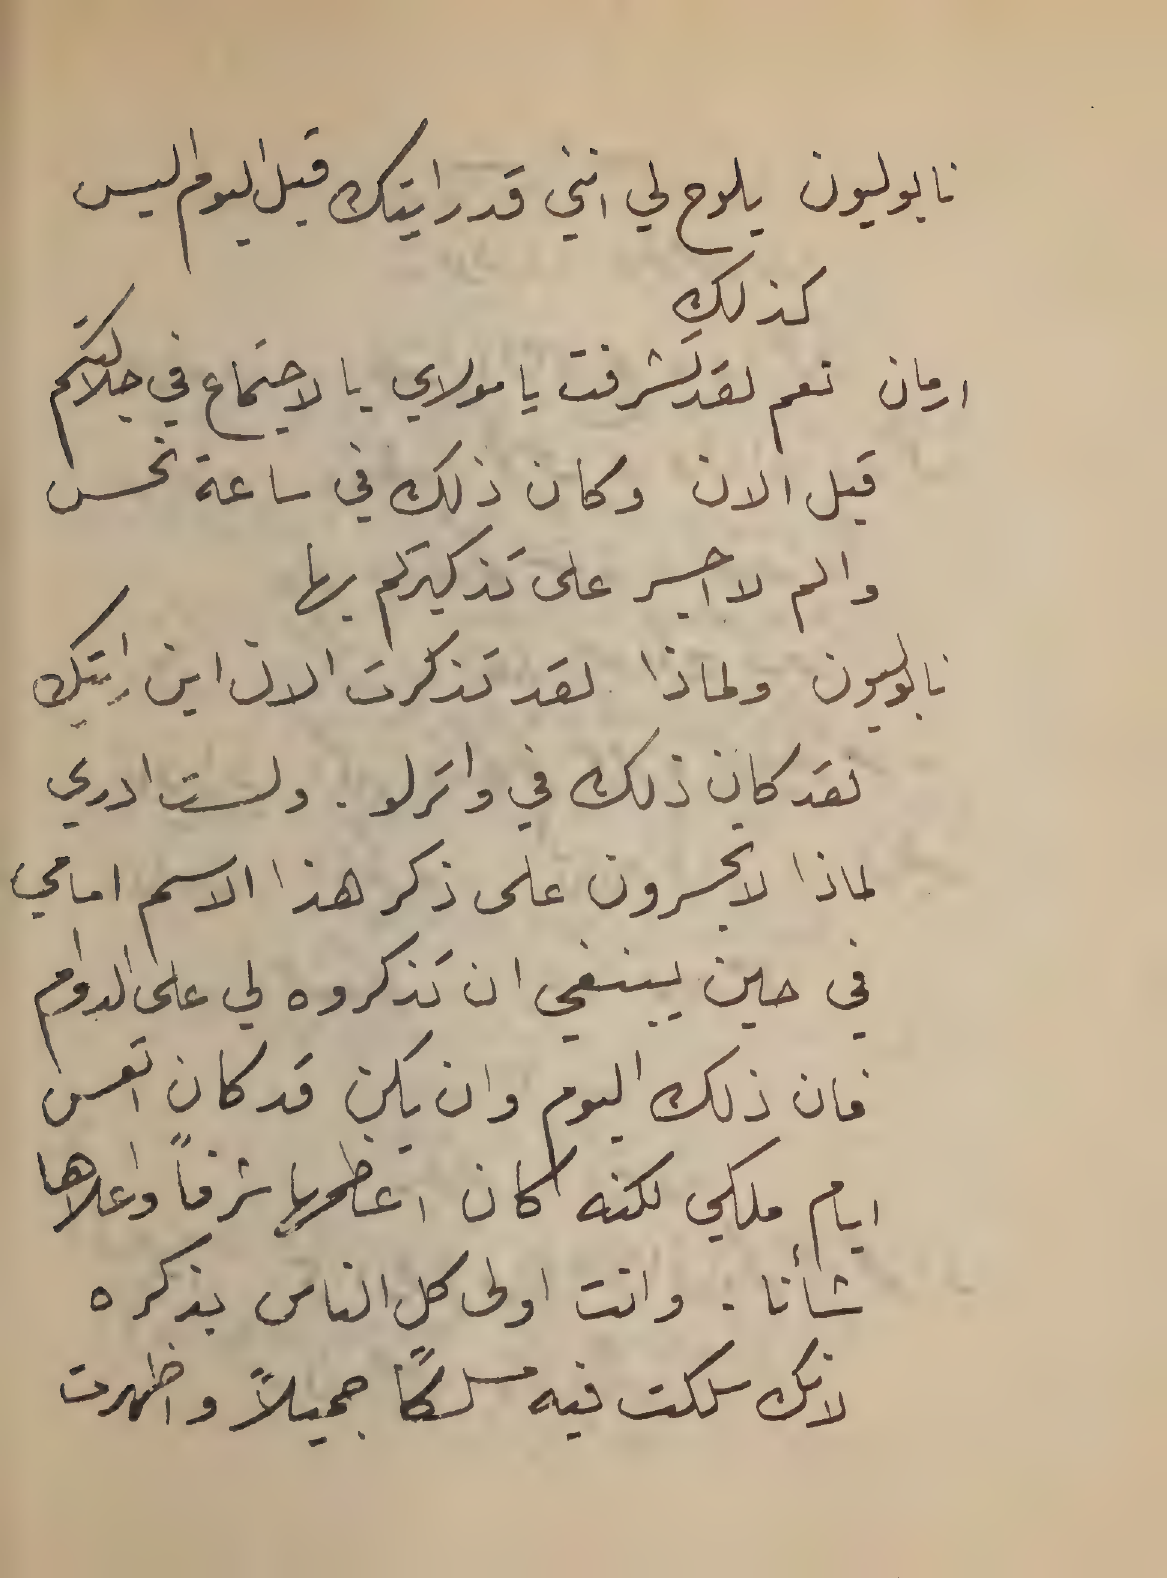 نابوليون يلوح لي انني قد رايتك قبل اليوم اليس
كذلك
ارمان نعم لقد تشرفت يا مولاي بالاجتماع في جلالتكم
قبل الان وكان ذلك في ساعة نحس
والم لا اجسر على تذكيركم بها
نابوليون ولماذا لقد تذكرت الان اين رايتك
لقد كان ذلك في واترلو . ولست ادري
لماذا لا تجسرون على ذكر هذا الاسم امامي
في حين ينبغي ان تذكروه لي على الدوام
فان ذلك اليوم وان يكن قد كان اتعس
ايام ملكي لكنه كان اعظمها شرفاً واعلاها
شأنا . وانت اولى كل الناس بذكره
لانك سلكت فيه مسلكاً جميلاً واظهرت